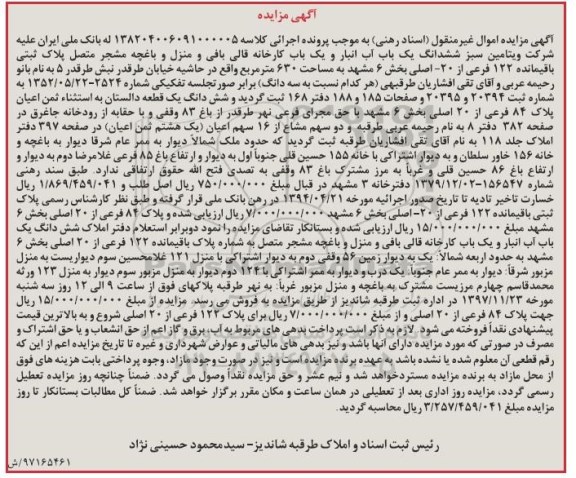 آگهی مزایده
آگهی مزایده اموال غیرمنقول (اسناد رهنی) به موجب پرونده اجرائی کلاسه ۱۳۸۲۰۴۰۰۶۰۹۱۰۰۰۰۰۵ له بانک ملی ایران علیه
شرکت ویتامین سبز ششدانگ یک باب آب انبار و یک باب کارخانه قالی بافی و منزل و باغچه مشجر متصل پلاک ثبتی
باقیمانده ۱۲۲ فرعی از ۲۰- اصلی بخش ۶ مشهد به مساحت ۶۳۰ مترمربع واقع در حاشیه خیابان طرقدر نبش طرقدر ۵ به نام بانو
رحیمه عربی و آقای تقی افشاریان طرقبهی (هر کدام نسبت به سه دانگ) برابر صورتجلسه تفکیکی شماره ۲۵۲۴-۱۳۵۲/۰۵/۲۲ به
شماره ثبت ۲۰۳۹۴ و ۲۰۳۹۵ و صفحات ۱۸۵ و ۱۸۸ دفتر ۱۶۸ ثبت گردید و شش دانگ یک قطعه دالستان به استثناء ثمن اعیان
پلاک ۸۴ فرعی از ۲۰ اصلی بخش ۶ مشهد با حق مجرای فرعی نهر طرقدر از باغ ۸۳ وقفی و با حقابه از رودخانه جاغرق در
صفحه ۳۸۲ دفتر ۸ به نام رحیمه عربی طرقبه و دو سهم مشاع از ۱۶ سهم اعیان (یک هشتم ثمن اعیان) در صفحه ۳۹۷ دفتر
املاک جلد ۱۱۸ به نام آقای تقی افشاریان طرقبه ثبت گردید که حدود ملک شمالاً دیوار به ممر عام شرقا دیوار به باغچه و
خانه ۱۵۶ خاور سلطان و به دیوار اشتراکی با خانه ۱۵۵ حسین قلی جنوباً اول به دیوار و ارتفاع باغ ۸۵ فرعی غلامرضا دوم به دیوار و
ارتفاع باغ ۸۶ حسین قلی و غرباً به مرز مشترک باغ ۸۳ وقفی به تصدی فتح الله حقوق ارتفاقی ندارد. طبق سند رهنی
شماره ۱۵۶۵۴۷-۱۳۷۹/۱۲/۰۲ دفترخانه ۳ مشهد در قبال مبلغ ۷۵۰/۰۰۰/۰۰۰ ریال اصل طلب و ۱/۸۶۹/۴۵۹/۰۴۱ ریال
خسارت تاخیر تادیه تا تاریخ صدور اجرائیه مورخه ۱۳۹۴/۰۴/۲۱ در رهن بانک ملی قرار گرفته و طبق نظر کارشناس رسمی پلاک
ثبتی باقیمانده ۱۲۲ فرعی از ۲۰- اصلی بخش ۶ مشهد ۷/۰۰۰/۰۰۰/۰۰۰ ریال ارزیابی شده و پلاک ۸۴ فرعی از ۲۰ اصلی بخش ۶
مشهد مبلغ ۱۵/۰۰۰/۰۰۰/۰۰۰ ریال ارزیابی شده و بستانکار تقاضای مزایده را نمود دوبرابر استعلام دفتر املاک شش دانگ یک
باب آب انبار و یک باب کارخانه قالی بافی و منزل و باغچه مشجر متصل به شماره پلاک باقیمانده ۱۲۲ فرعی از ۲۰ اصلی بخش ۶
مشهد به حدود اربعه شمالاً: یک به دیوار زمین ۵۶ وقفی دوم به دیوار اشتراکی با منزل ۱۲۱ غلامحسین سوم دیواریست به منزل
مزبور شرقاً: دیوار به ممر عام جنوباً: یک درب و دیوار به ممر اشتراکی با ۱۲۴ دوم دیوار به منزل مزبور سوم دیوار به منزل ۱۲۳ ورثه
محمدقاسم چهارم مرزیست مشترک به باغچه و منزل مزبور غرباً: به نهر طرقبه پلاکهای فوق از ساعت ۹ الی ۱۲ روز سه شنبه
مورخه ۱۳۹۷/۱۱/۲۳ در اداره ثبت طرقبه شاندیز از طریق مزایده به فروش می رسد. مزایده از مبلغ ۱۵/۰۰۰/۰۰۰/۰۰۰ ریال
جهت پلاک ۸۴ فرعی از ۲۰ اصلی و از مبلغ ۷/۰۰۰/۰۰۰/۰۰۰ ریال برای پلاک ۱۲۲ فرعی از ۲۰ اصلی شروع و به بالاترین قیمت
پیشنهادی نقداً فروخته می شود. لازم به ذکر است پرداخت بدهی های مربوطه به آب، برق و گاز اعم از حق انشعاب و یا حق اشتراک و
مصرف در صورتی که مورد مزایده دارای آنها باشد و نیز بدهی های مالیاتی و عوارض شهرداری و غیره تا تاریخ مزایده اعم از این که
رقم قطعی آن معلوم شده یا نشده باشد به عهده برنده مزایده است و نیز در صورت وجود مازاد، وجوه پرداختی بابت هزینه های فوق
از محل مازاد به برنده مزایده مستردخواهد شد و نیم عشر و حق مزایده نقداً وصول می گردد. ضمناً چنانچه روز مزایده تعطیل
رسمی گردد، مزایده روز اداری بعد از تعطیلی در همان ساعت و مکان مقرر برگزار خواهد شد. ضمناً کل مطالبات بستانکار تا روز
مزایده مبلغ ۳/۲۵۷/۴۵۹/۰۴۱ ریال محاسبه گردید.
رئیس ثبت اسناد و املاک طرقبه شاندیز- سیدمحمود حسینی نژاد
۹۷۱۶۵۴۶۱/ش